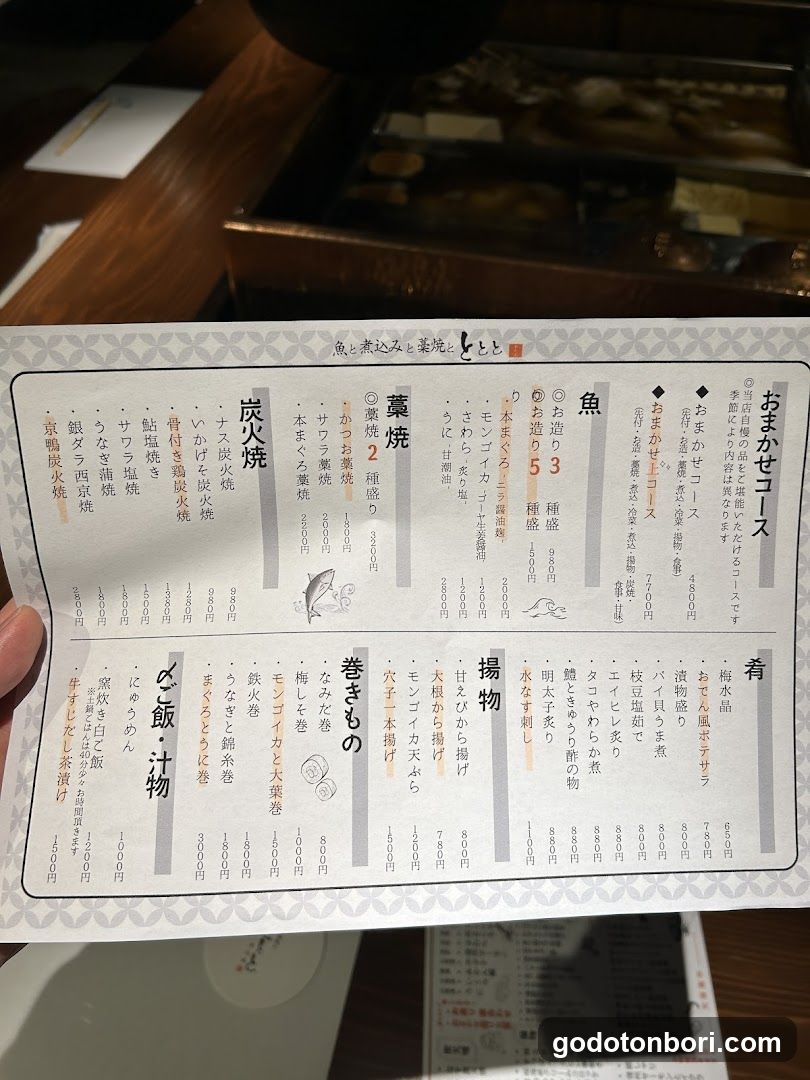 魚と煮込みと藁焼と ととと
おまかせコース
◎当店自慢の品をご堪能いただけるコースです
季節により内容は異なります
◆おまかせコース 4800円
(先付・お造・藁焼・煮込・冷菜・揚物・食事)
◆おまかせ上コース 7700円
(先付・お造・藁焼・煮込・冷菜・煮込・揚物・炭焼・食事・甘味
魚
◎お造り3種盛 980円
◎お造り5種盛 1500円
・本まぐろ -ニラ醤油麹- 2000円
・モンゴイカ -ゴーヤ生姜醤油- 1200円
・さわら -炙り塩- 1200円
・うに -甘潮油- 2800円
藁焼
◎藁焼2種盛り 3200円
・かつお藁焼 1800円
・サワラ藁焼 2000円
・本まぐろ藁焼 2200円
炭火焼
・ナス炭火焼 980円
・いかげそ炭火焼 980円
・骨付き鶏炭火焼 1280円
・鮎塩焼き 1380円
・サワラ塩焼 1500円
・うなぎ蒲焼 1800円
・銀ダラ西京焼 1800円
・京鴨炭火焼 2800円
肴
・梅水晶 650円
・おでん風ポテサラ 780円
・漬物盛り 800円
・バイ貝うま煮 800円
・枝豆塩茹で 800円
・エイヒレ炙り 880円
・タコやわらか煮 880円
・鱧ときゅうり酢の物 880円
・明太子炙り 880円
・水なす刺し 1100円
揚物
・甘えびから揚げ 800円
・大根から揚げ 780円
・モンゴイカ天ぷら 1200円
・穴子一本揚げ 1500円
巻きもの
・なみだ巻 800円
・梅しそ巻 1000円
・モンゴイカと大葉巻 1500円
・鉄火巻 1800円
・うなぎと錦糸巻 1800円
・まぐろとうに巻 3000円
〆ご飯・汁物
・にゅうめん 1000円
・窯炊き白ご飯 1200円
※土鍋ごはんは40分少々お時間頂きます
・牛すじだし茶漬け 1500円
godotonbori.com